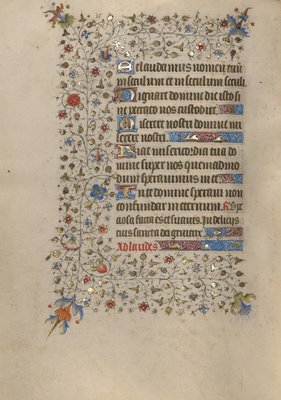 Et laudamus nomen tuu
in seculum et in seculum seculi.
Dignare domine die isto si
ne peccato nos custodire.
Miserere nostri domine mi
serere nostri.
Fiat misericordia tua do
mine super nos quemadmo
dum sperauimus in te.
In te domine speraui non
confundar in eternum. 
facta es et suauis. In deliciis
tuis sancta dei genitrix.
Ad laudes